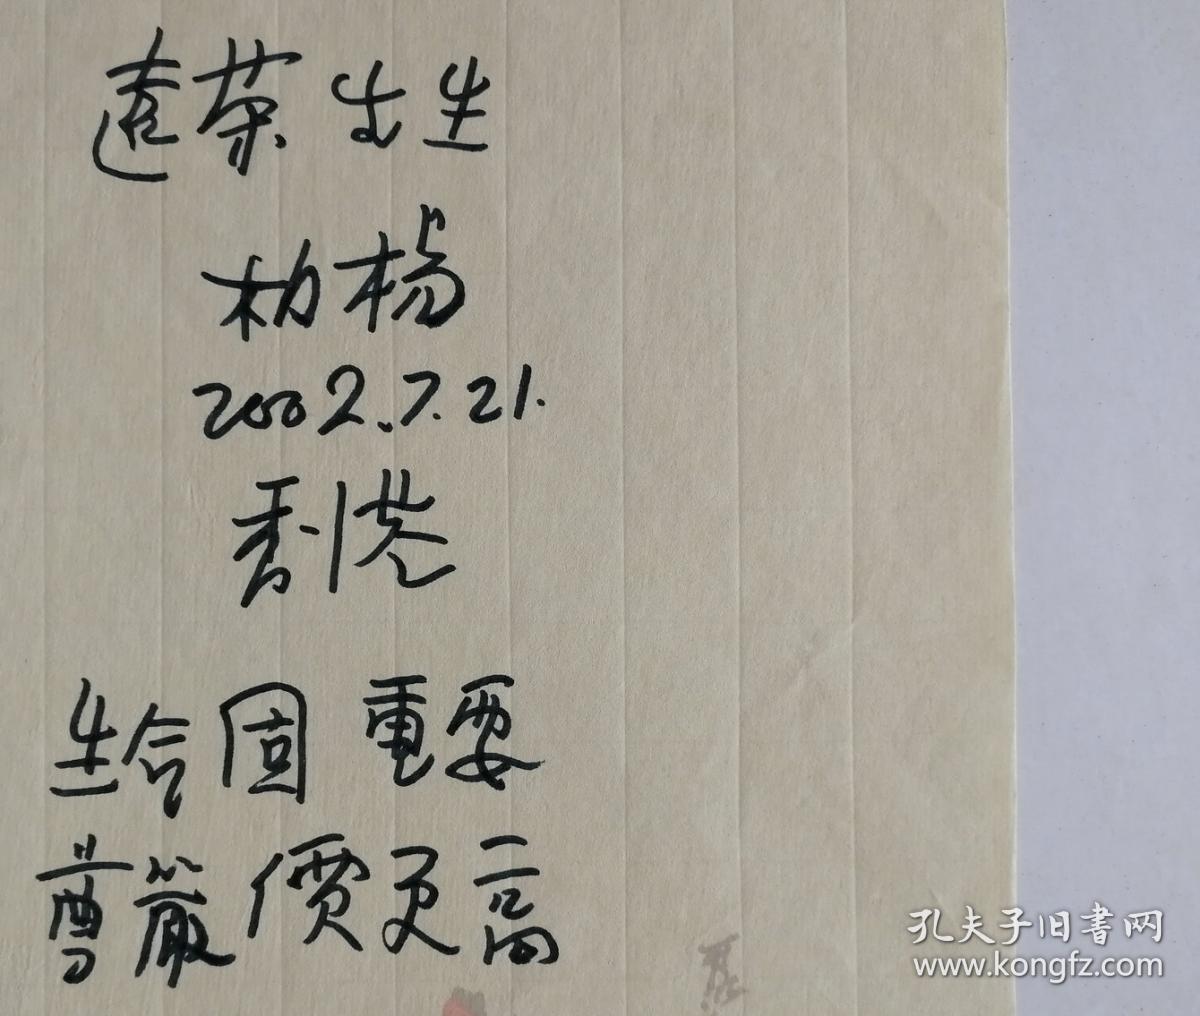 遠榮先生
柏楊
2002.7.21.
香港
生命固重要
尊嚴價更高
孔夫子旧书网
www.kongfz.com